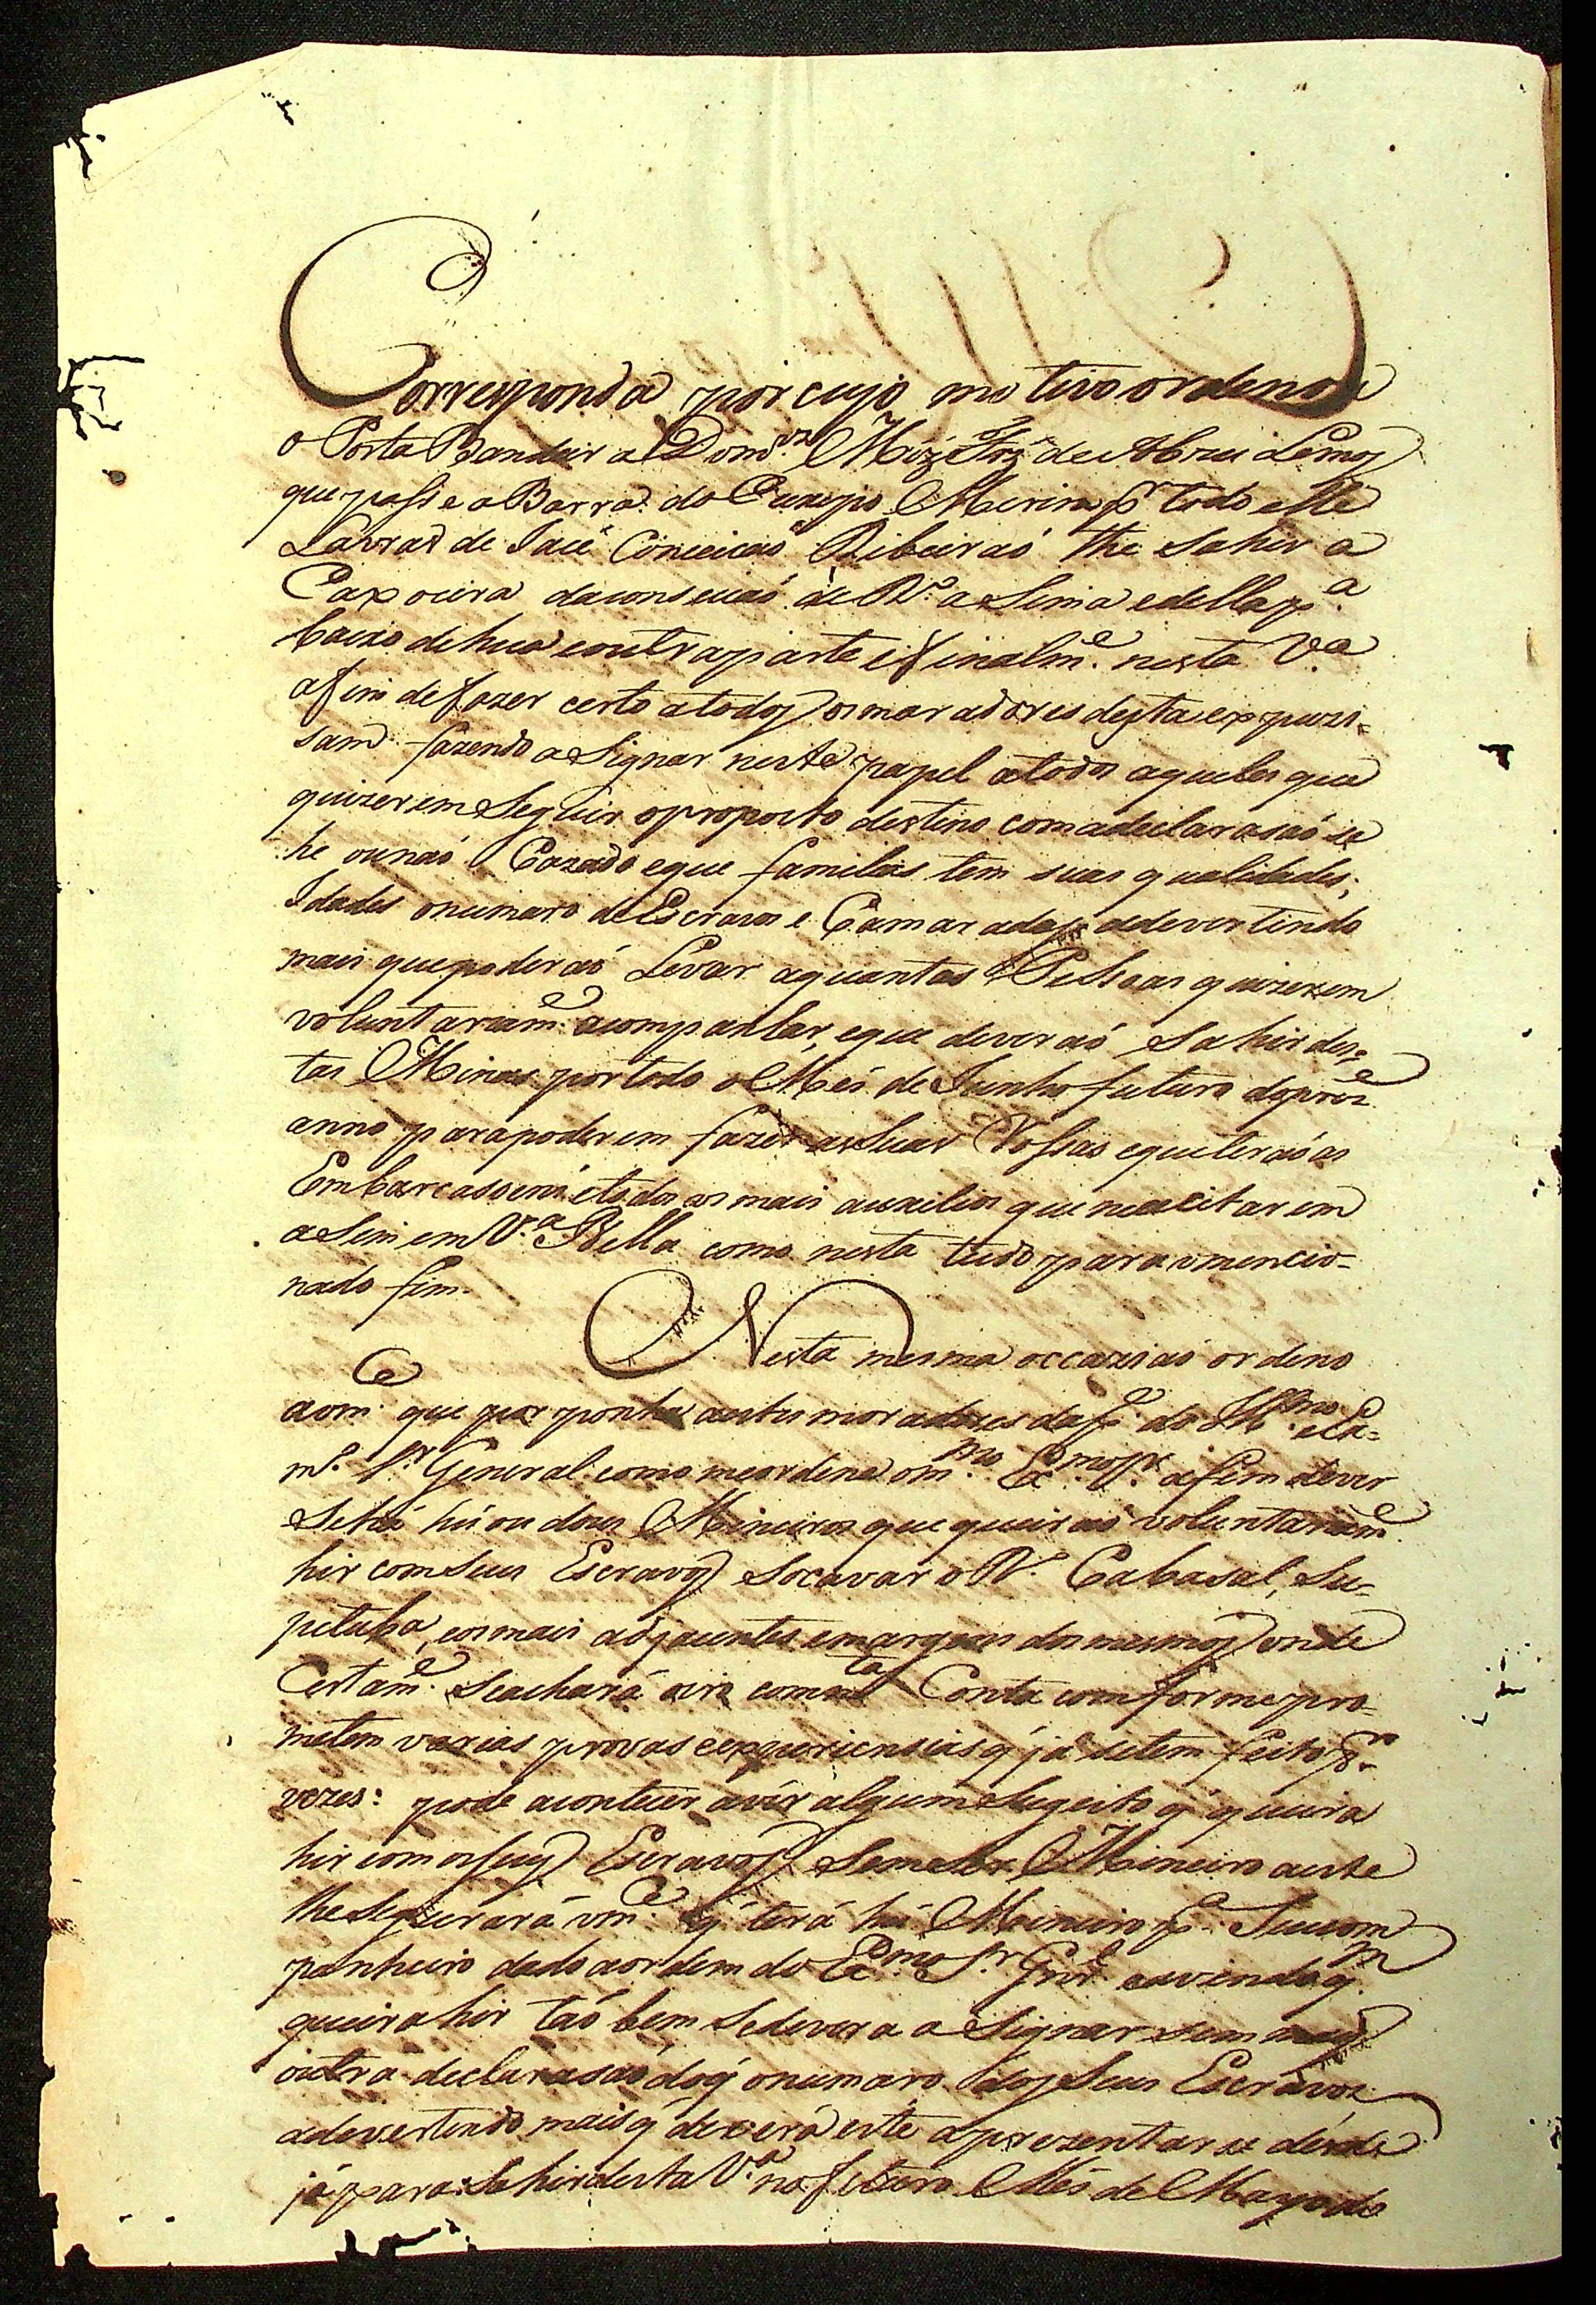 Corresponda por cujo motivo ordeno a
o Porta Bandeira Dom.os Miz Joz de Abreu Lemos
que passe a Barra do Cuxipo Merim p.r todo elle
Lavras de Jacé Conceicaó Ribeiraó the sahir a
Caxoeira daconseicaó de R.o aSima edella p.a
baixo dehua eoutraparte e finalm.e nesta V.a
afim defazer certo atodos os moradores desta expuzi-
sam fazendo aSignar neste papel atodos aqueles que
quizerem Seguir oproposto destino comadeclarasaó se
he ounaó Cazado eque familias tem suas qualidades,
Idades onumaro de Escravos e Camaradas adevertindo
mais quepoderaó Levar aquantas Pessoas quizerem
voluntariam.e acompanhar, eque deveraó Sahir des-
tas Minas portodo o Mes de Junho futuro doprez.e
anno parapoderem fazer as Suas Rossas equeteraó as
Embarcassoens etodos os mais auxilios que necesitarem
aSim em V.a Bella como nesta tudo para o mencio-
nado fim.
Nesta mesma occaziaó ordeno
avm.ce que proponha aestes moradores da p.e do Ill.mo eEx-
m.o S.r General como meordena om.mo Ex.mo Sr. afim dever
Sehá hú ou dous Mineiros que queiraó voluntariam.e
hir comSeus Escravos Socavar o R.o Cabasal, Su-
putuba, eosmais adjacentes emargens dos mesmos onde
Certam.e Seachará oiro comm.ta Conta comforme pro-
metem varias provas eexperiensias q' já setem feito p.r
vezes: pode acontecer avér algum Sugeito q' queira
hir comosseus Escravos Semeser Mineiro aeste
lheSegurará vm.ce q' terá hú Mineiro p.a Seucom
panheiro dado aordem do Ex.mo S.r Gn.l eavendo q.m
queira hir taóbem Sedevera aSignar sem mais
outra declarasaó doq' onumaro dos Seus Escravos
adevertindo mais q' deverá este aprezentarse désde
já para Sahir desta V.a no futuro Mes de Mayo do